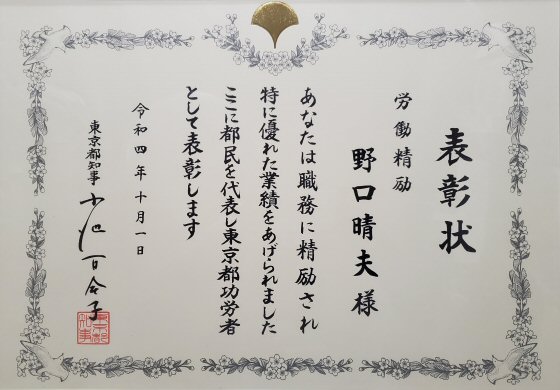 表彰状
労働精励
野口晴夫様
あなたは職務に精励され
特に優れた業績をあげられました
ここに都民を代表し東京都功労者
として表彰します
令和四年十月一日
東京都知事 小池百合子
東京都知事